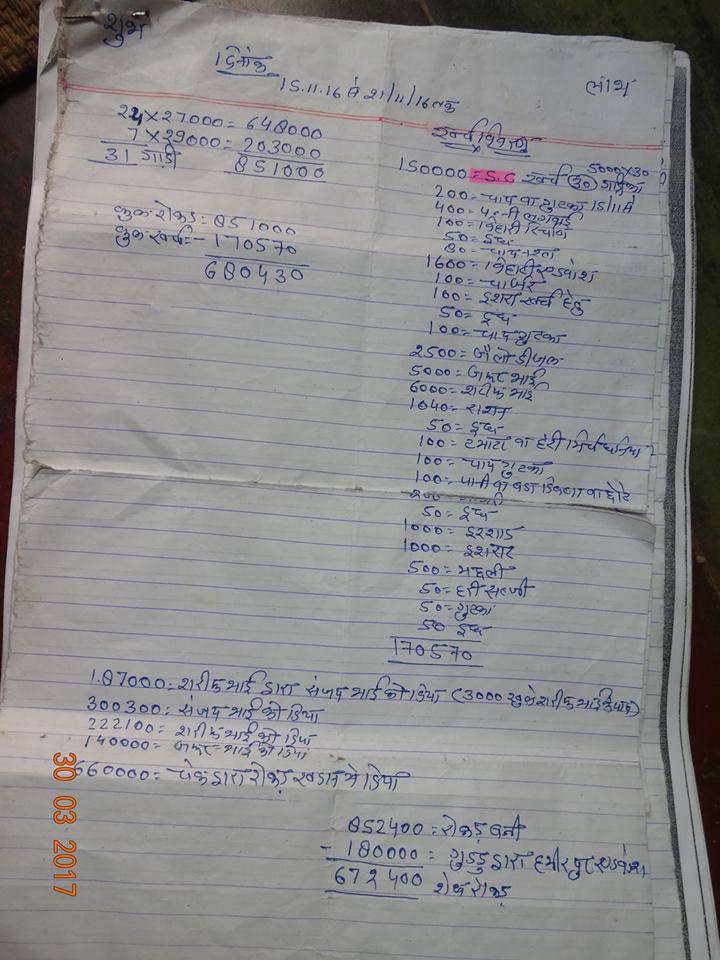 शुभ
लाभ
दिनांक
15.11.16 से 21/11/16 तक
24×27000=648000
7×29000=203000
31 गाड़ी 851000
कुल रोकड़= 851000
कुल खर्च= -170570
680430
खर्च विवरण
5000×30
150000=S.C खर्चा 30 गाड़ी का
200=चाय व गुटका 15/11 से
400=
100=बिहारी रिचार्ज
50=दूध
80=चाय
1600=बिहारी
100=
100=इशरा खर्चा हेतु
50=दूध
100=चाय गुटका
2500=बोलेरो डीजल
5000=जफर भाई
6000=शरीफ भाई
1040=राशन
50=दूध
100=टमाटर व हरी मिर्च धनिया
100=चाय गुटका
100=पानी का बड़ा
50=दूध
1000=इरशाद
1000=इशरार
500=मछली
50=हरी सब्जी
50=गुटका
50 दूध
170570
187000=शरीफ भाई द्वारा संजय भाई को दिया (3000 खुले शरीफ भाई
300300=संजय भाई को दिया
222100=शरीफ भाई को दिया
140000=जफर भाई को दिया
660000=चेक द्वारा रोकड़ खदान में दिया
852400=रोकड़ बनी
-180000=गुड्डू द्वारा हमीरपुर
672400 शेष रोकड़
30 03 2017